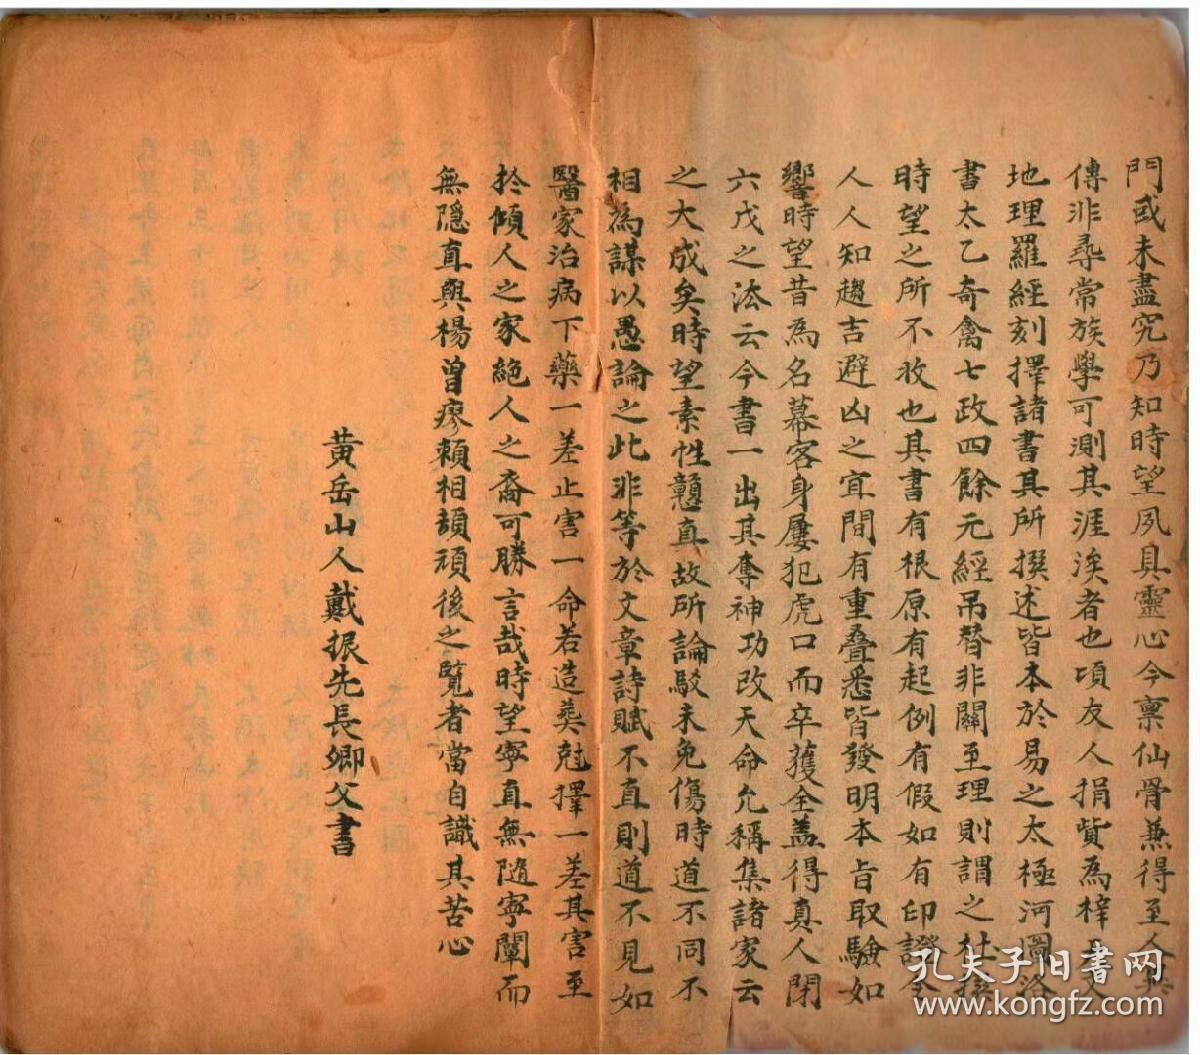 門或未盡究乃知時望夙具靈心今稟仙骨兼得至人
傳非尋常族學可測其涯涘者也項友人捐貲為梓
地理羅經刻擇諸書其所撰述皆本於易之太極河圖洛
書太乙奇禽七政四餘元經吊替非關至理則謂之杜撰
時望之所不收也其書有根原有起例有假如有印證令
人人知趨吉避凶之宜間有重疊悉皆發明本旨取驗如
響時望昔為名幕客身屢犯虎口而卒獲全蓋得真人閉
六戊之法云今書一出其奪神功改天命允稱集諸家云
之大成矣時望素性戇直故所論駁未免傷時道不同不
相為謀以愚論之此非等於文章詩賦不直則道不見如
醫家治病下藥一差止害一命若造葬尅擇一差其害至
於傾人之家絕人之裔可勝言哉時望寧直無隨寧闡而
無隱直與楊曾廖賴相頡頏後之覽者當自識其苦心
黃岳山人戴振先長卿父書
孔夫子旧書网
www.kongfz.com